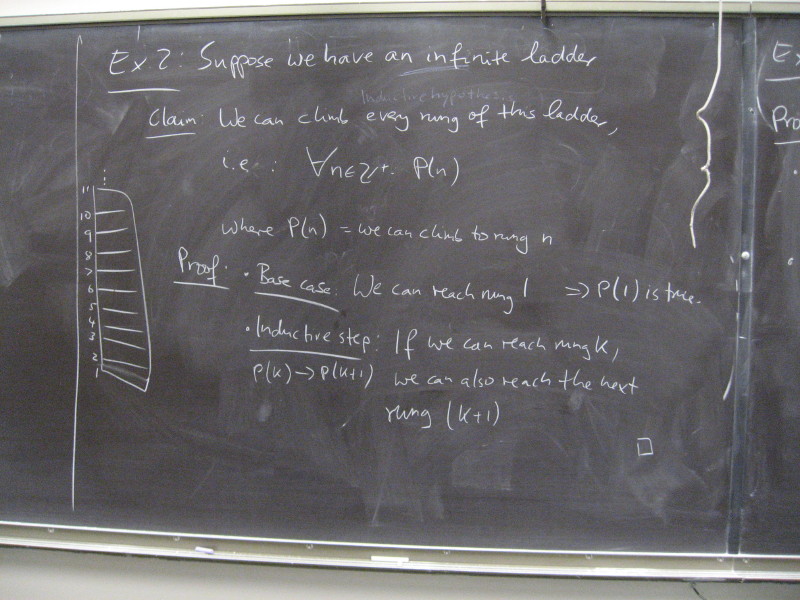 Ex 2: Suppose we have an infinite ladder
Inductive hypothesis
Claim: We can climb every rung of this ladder,
i.e.: ∀n∈ℤ⁺. P(n)
where P(n) = we can climb to rung n
Proof: • Base case: We can reach rung 1 ⇒ P(1) is true.
• Inductive step: If we can reach rung k,
P(k) → P(k+1) we can also reach the next
rung (k+1)
□
11
10
9
8
7
6
5
4
3
2
1
Ex
Pro